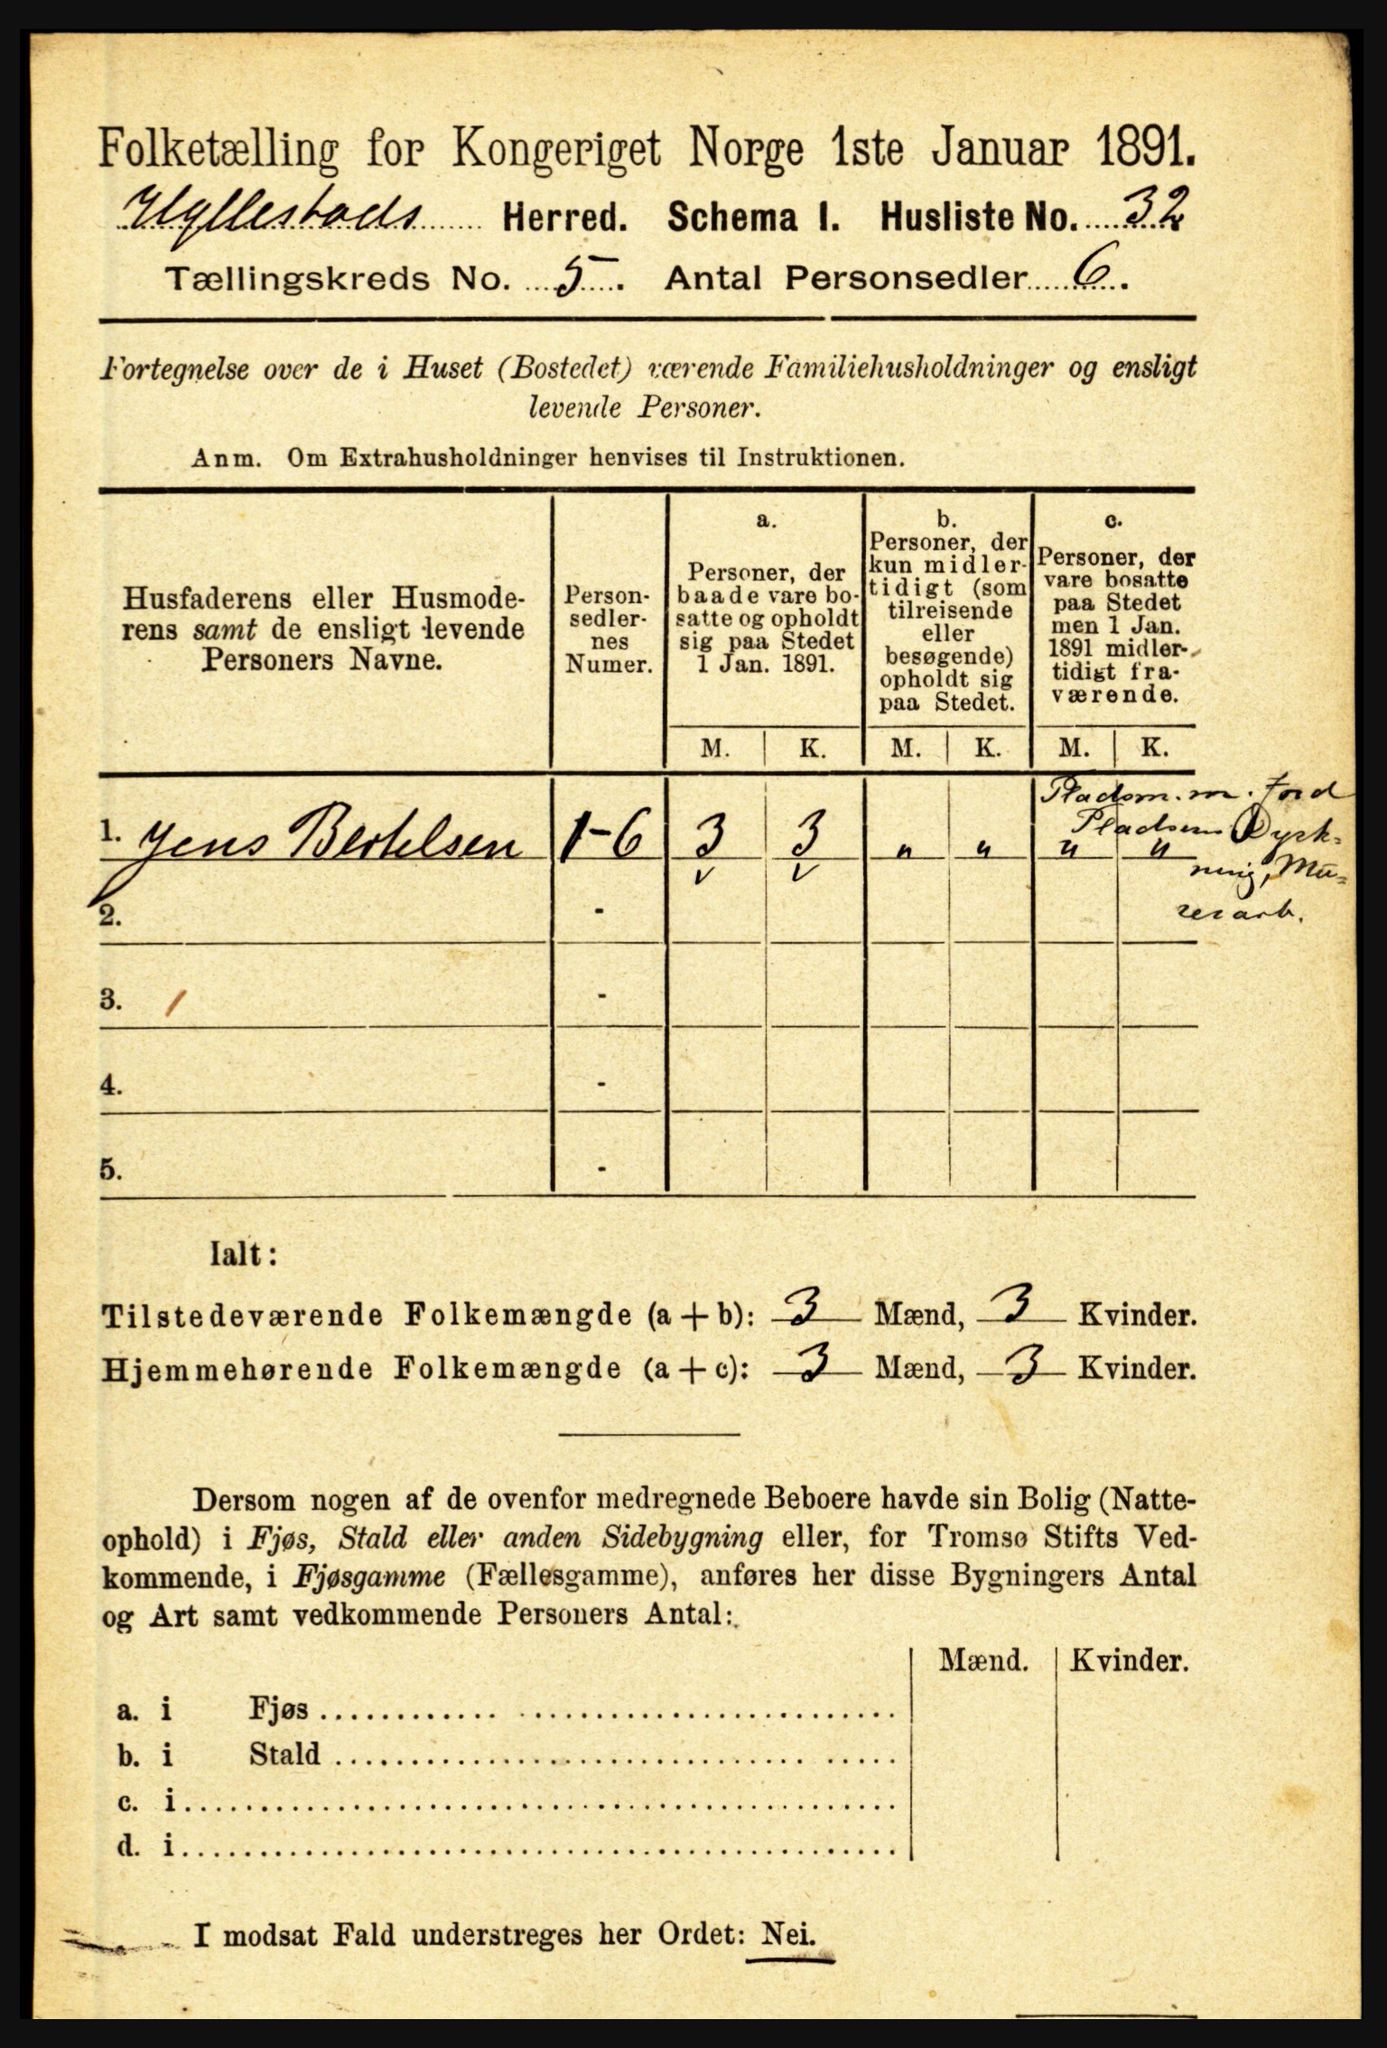 Folketælling for Kongeriget Norge 1ste Januar 1891.
Hyllestads Herred. Schema I. Husliste No. 32
Tællingskreds No. 5. Antal Personsedler 6.
Fortegnelse over de i Huset (Bostedet) værende Familiehusholdninger og ensligt
levende Personer.
Anm. Om Extrahusholdninger henvises til Instruktionen.
Husfaderens eller Husmode-
rens samt de ensligt levende
Personers Navne.
Person-
sedler-
nes
Numer.
a.
Personer, der
baade vare bo-
satte og opholdt
sig paa Stedet
1 Jan. 1891.
b.
Personer, der
kun midler-
tidigt (som
tilreisende
eller
besøgende)
opholdt sig
paa Stedet.
c.
Personer, der
vare bosatte
paa Stedet
men 1 Jan.
1891 midler-
tidigt fra-
værende.
M. K. M. K. M. K.
Pladsm. m. Jord
1. Jens Bertelsen 1-6 3 3 " " " "
Pladsens Dyrk-
ning, Mu-
rerarb.
2. -
3. -
4. -
5. -
Ialt:
Tilstedeværende Folkemængde (a + b): 3 Mænd, 3 Kvinder.
Hjemmehørende Folkemængde (a + c): 3 Mænd, 3 Kvinder.
Dersom nogen af de ovenfor medregnede Beboere havde sin Bolig (Natte-
ophold) i Fjøs, Stald eller anden Sidebygning eller, for Tromsø Stifts Ved-
kommende, i Fjøsgamme (Fællesgamme), anføres her disse Bygningers Antal
og Art samt vedkommende Personers Antal:
Mænd. Kvinder.
a. i Fjøs
b. i Stald
c. i
d. i
I modsat Fald understreges her Ordet: Nei.